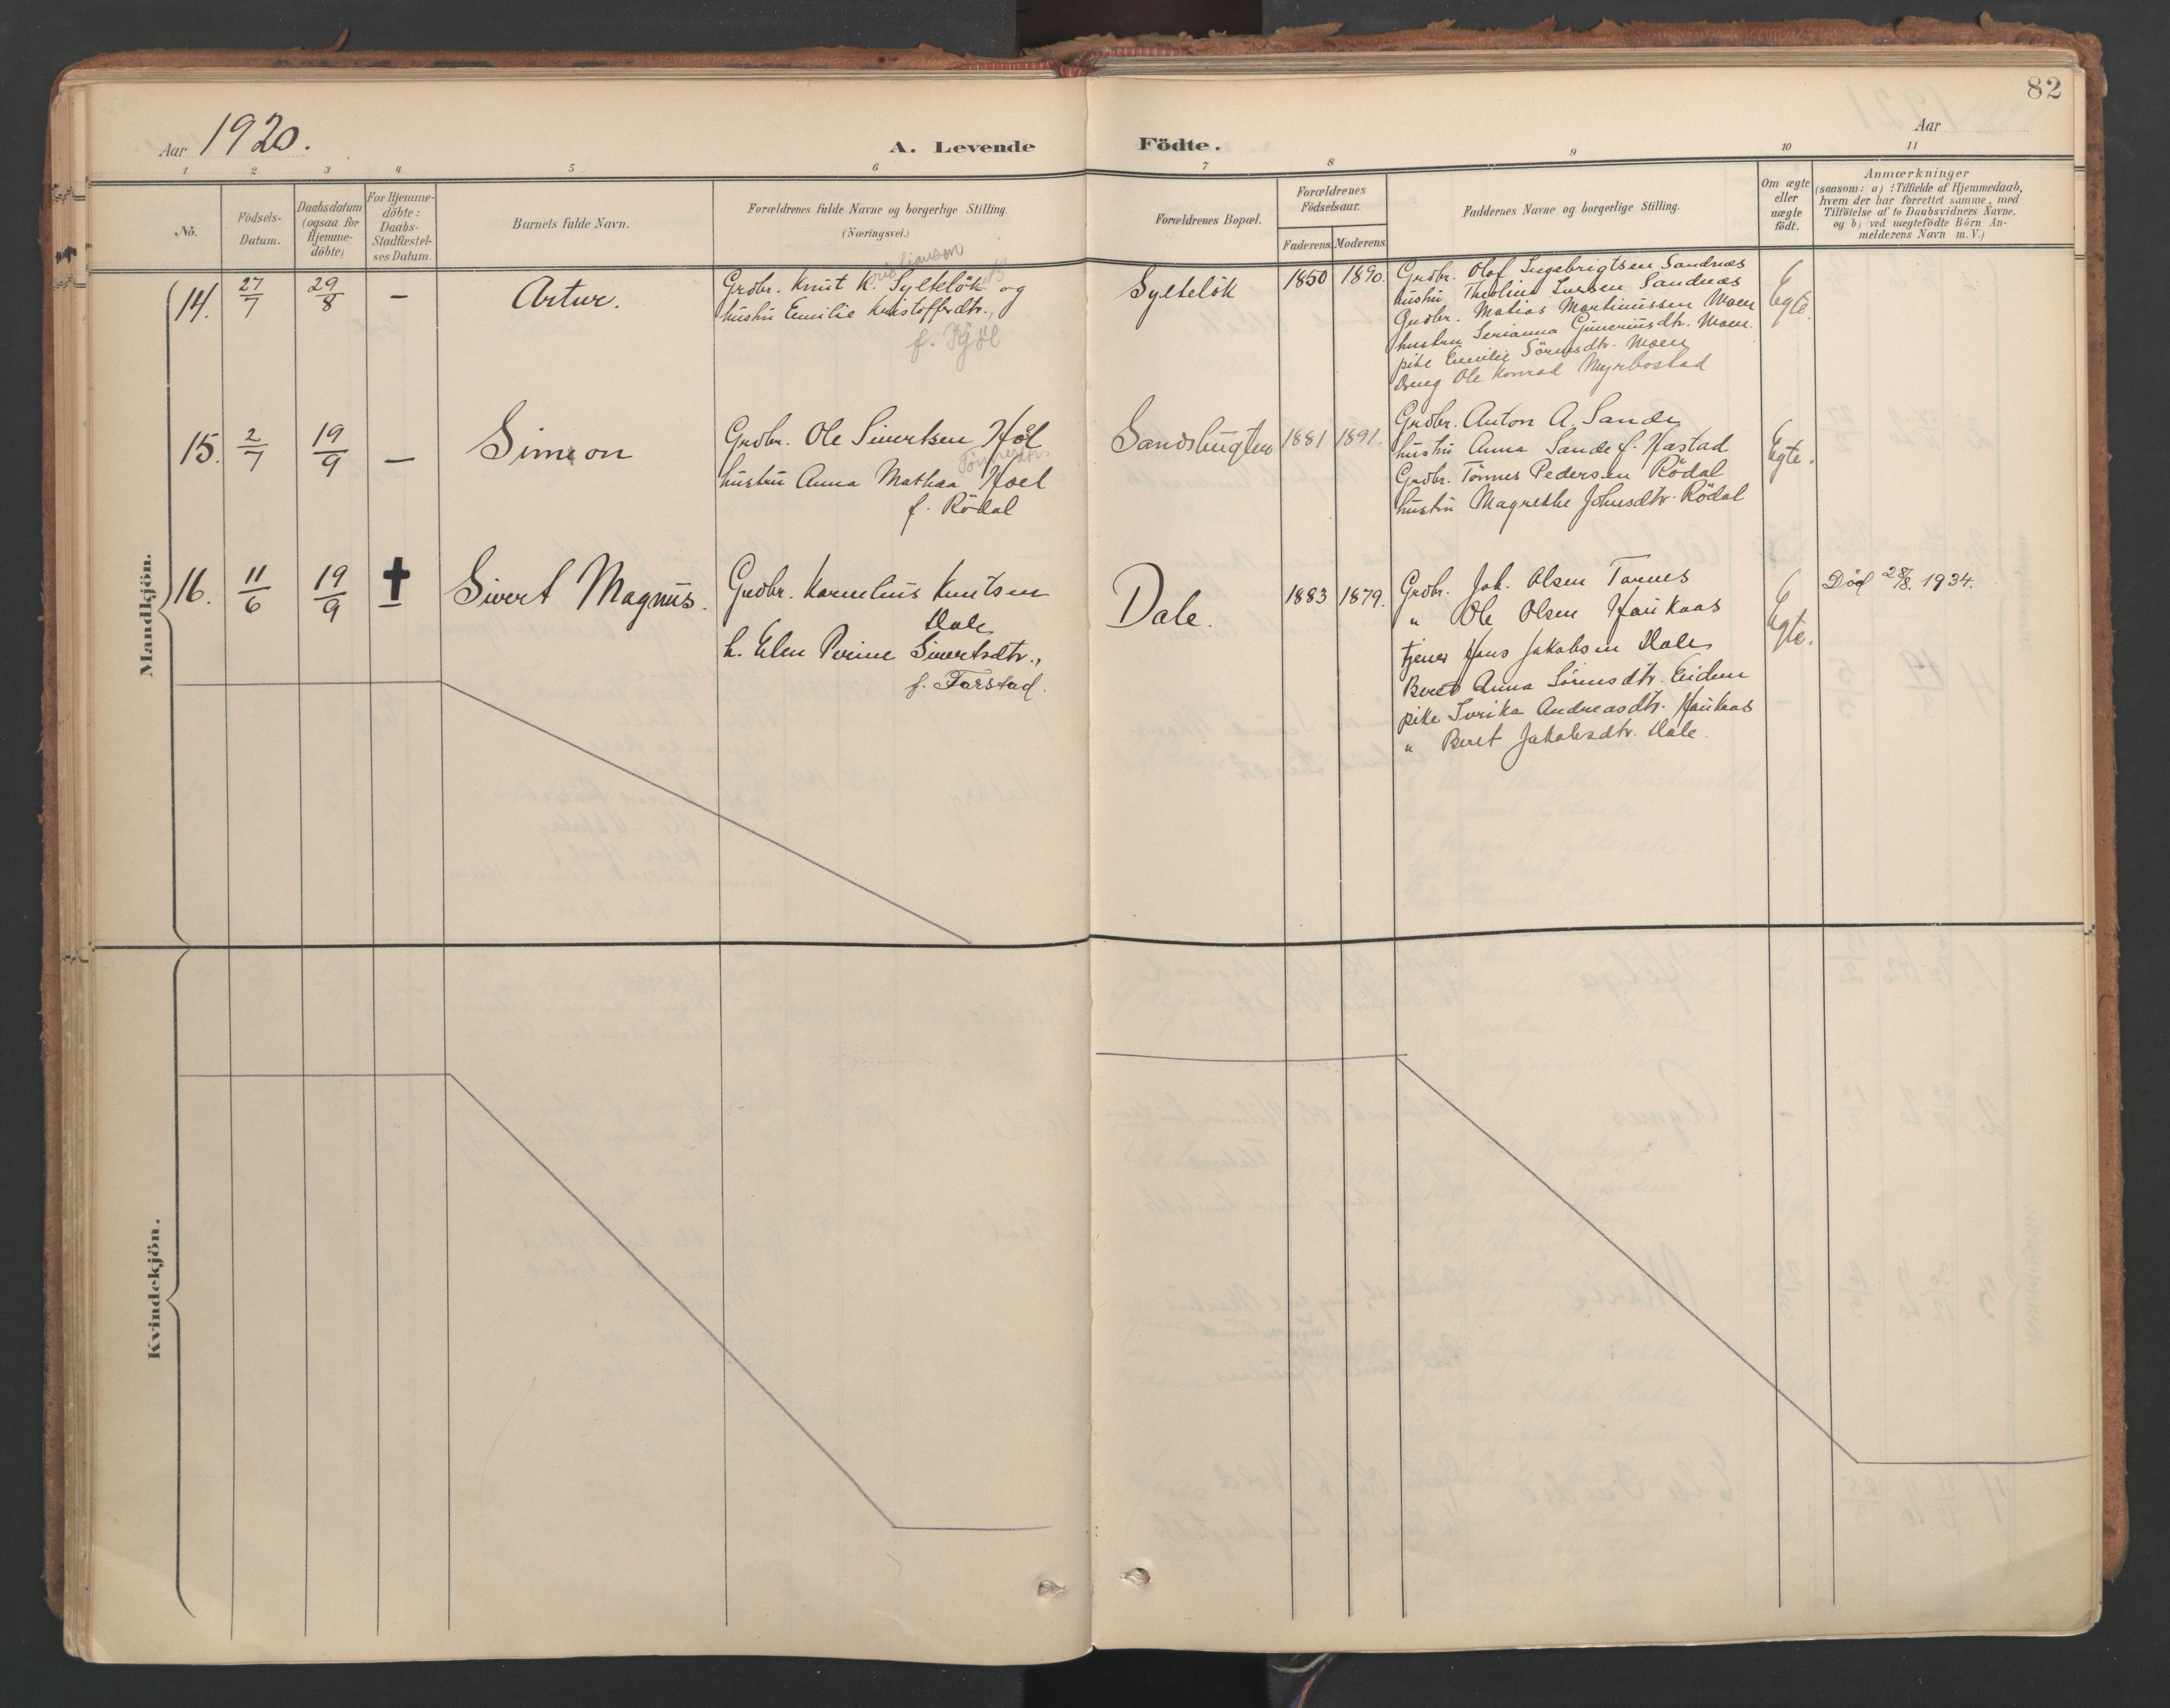 82
Aar 1920.
A. Levende Födte.
Aar
1 2 3 4 5 6 7 8 9 10 11
No.
Födsels-
Datum.
Daabsdatum
(ogsaa för
Hjemme-
döbte)
For Hjemme-
döbte:
Daabs-
Stadfæstel-
ses Datum.
Barnets fulde Navn.
Forældrenes fulde Navne og borgerlige Stilling.
(Næringsvei.)
Forældrenes Bopæl.
Forældrenes
Födselsaar.
Faderens Moderens
Faddernes Navne og borgerlige Stilling.
Om ægte
eller
uægte
födt.
Anmærkninger
(saasom: a) i Tilfælde af Hjemmedaab,
hvem der har forrettet samme, med
Tilföielse af to Daabsvidners Navne.
og b) ved uægtefödte Börn An-
melderens Navn m. V.)
Mandkjön.
14.
27/7
29/8
—
Artur.
Grdbr. Knut K. Sylteløk og
hustru Emilie Kristoffersdtr.,
Sylteløk
1850 1890.
Grdbr. Olaf Ingebrigtsen Sandnæs
hustru Theoline Iversen Sandnæs
Grdbr. Matias Martinussen Moen
hustru Serianna Guneriusdtr. Moen.
pike Emilie Sörensdtr. Moen
Dreng Ole Konrad Myrbostad
Egte.
15.
2/7
19/9
—
Simeon
Grdbr. Ole Sivertsen Høl
Tönnesdtr.
hustru Anna Mathea Hoel
f. Rödal
Sandsbugten
1881 1891.
Grdbr. Anton A. Sande
hustru Anna Sande f. Hastad
Grdbr. Tönnes Pedersen Rödal
hustru Magrethe Johnsdtr. Rödal
Egte.
16.
11/6
19/9
✝
—
Sivert Magnus.
Grdbr. Kornelius Knutsen
Dale
h. Elen Perine Sivertsdtr.,
f. Farstad.
Dale.
1883 1879.
Grdbr. Joh. Olsen Tornes
" Ole Olsen Haukaas
tjener Hans Jakobsen Dale
Beret Anna Sörensdtr. Eidem
pike Andreasdtr. Haukaas
" Beret Jakobsdtr. Dale.
Egte.
Död 28/8. 1934.
Kvindekjön.